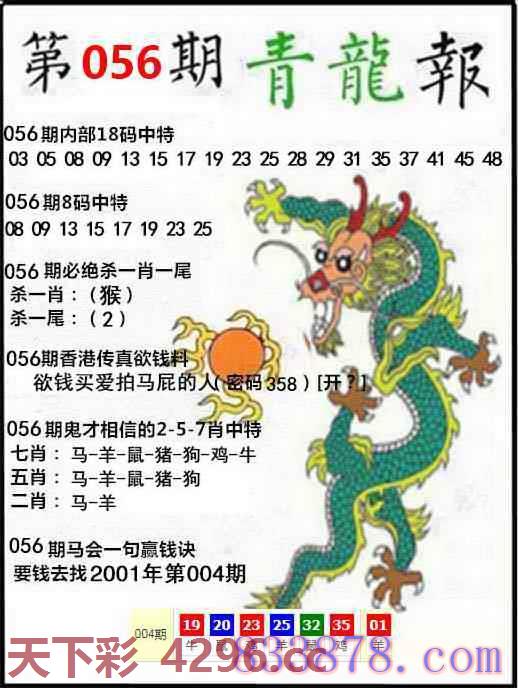 第056期 青龍報
056期内部18码中特
03 05 08 09 13 15 17 19 23 25 28 29 31 35 37 41 45 48
056期8码中特
08 09 13 15 17 19 23 25
056期必绝杀一肖一尾
杀一肖：(猴)
杀一尾：(2)
056期香港传真欲钱料
欲钱买爱拍马屁的人(密码358)[开?]
056期鬼才相信的2-5-7肖中特
七肖：马-羊-鼠-猪-狗-鸡-牛
五肖：马-羊-鼠-猪-狗
二肖：马-羊
056期马会一句赢钱诀
要钱去找2001年第004期
004期 19 20 23 25 32 35 01
牛 鼠 羊 鼠 鸡 羊
天下彩 4296.cc
833878.com